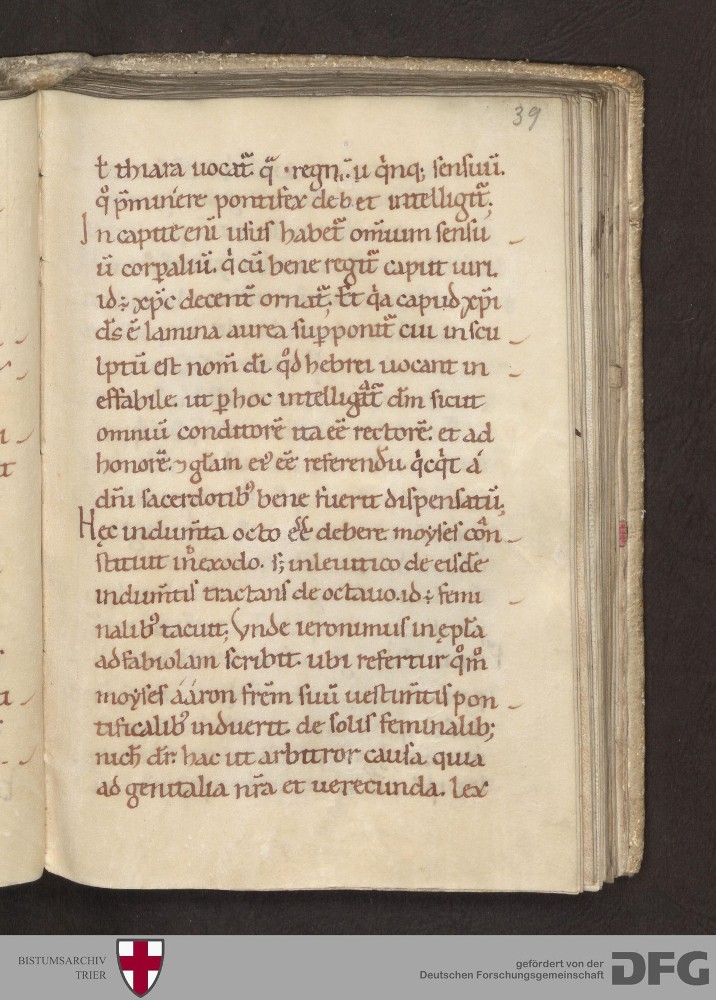 39
ł thiara uocat᷑ q̄ regnū u qi̇nq; sensuū.
qͦ p̄minere pontifex debet intelligit᷑;
In capite eni̅ usus habet᷑ omnium sensu
ū corꝑaliū. qi̇ cū bene regit᷑ caput uiri.
id÷ xp̄c decent̅ ornat᷑; Et qi̇a capud xp̄i
d̄s ē lamina aurea suꝑponit᷑ cui inscu
lptū est nom̄ dī. qͦd hebrei uocant in
effabile. ut ꝑ hoc intelligat᷑ dm̄ sicut
omniū conditorē ita eē rectorē. et ad
honorē. ⁊ gl̄am eiꝰ eē referendū. qi̇cqi̇t a
dn̄i sacerdotibꝰ bene fuerit dispensatū;
Hęc indum̄ta octo eē debere moẏses con
stituit in exodo. s; in leuitico de eisdē
indum̄tis tractans de octauo. id÷ femi
nalibꝰ tacuit; Vnde ieronimus in ępl̄a
ad fabiolam scribit. ubi refertur qͦm̊
moẏses ááron frēm suū uestim̄tis pon
tificalibꝰ induerit. de solis feminalib;
nich̄ dr̄. hac ut arbitror causa. quia
ad genitalia nr̄a et uerecunda. lex
BISTUMSARCHIV
TRIER
gefördert von der
Deutschen Forschungsgemeinschaft
DFG